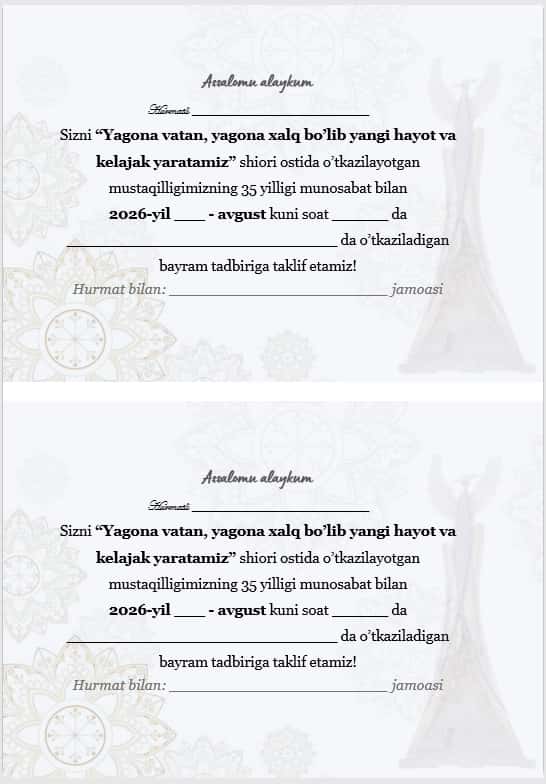 Assalomu alaykum
Hurmatli ______________________
Sizni “Yagona vatan, yagona xalq bo’lib yangi hayot va
kelajak yaratamiz” shiori ostida o’tkazilayotgan
mustaqilligimizning 35 yilligi munosabat bilan
2026-yil ____ - avgust kuni soat _______ da
__________________________________ da o’tkaziladigan
bayram tadbiriga taklif etamiz!
Hurmat bilan: ___________________________ jamoasi
Assalomu alaykum
Hurmatli ______________________
Sizni “Yagona vatan, yagona xalq bo’lib yangi hayot va
kelajak yaratamiz” shiori ostida o’tkazilayotgan
mustaqilligimizning 35 yilligi munosabat bilan
2026-yil ____ - avgust kuni soat _______ da
__________________________________ da o’tkaziladigan
bayram tadbiriga taklif etamiz!
Hurmat bilan: ___________________________ jamoasi